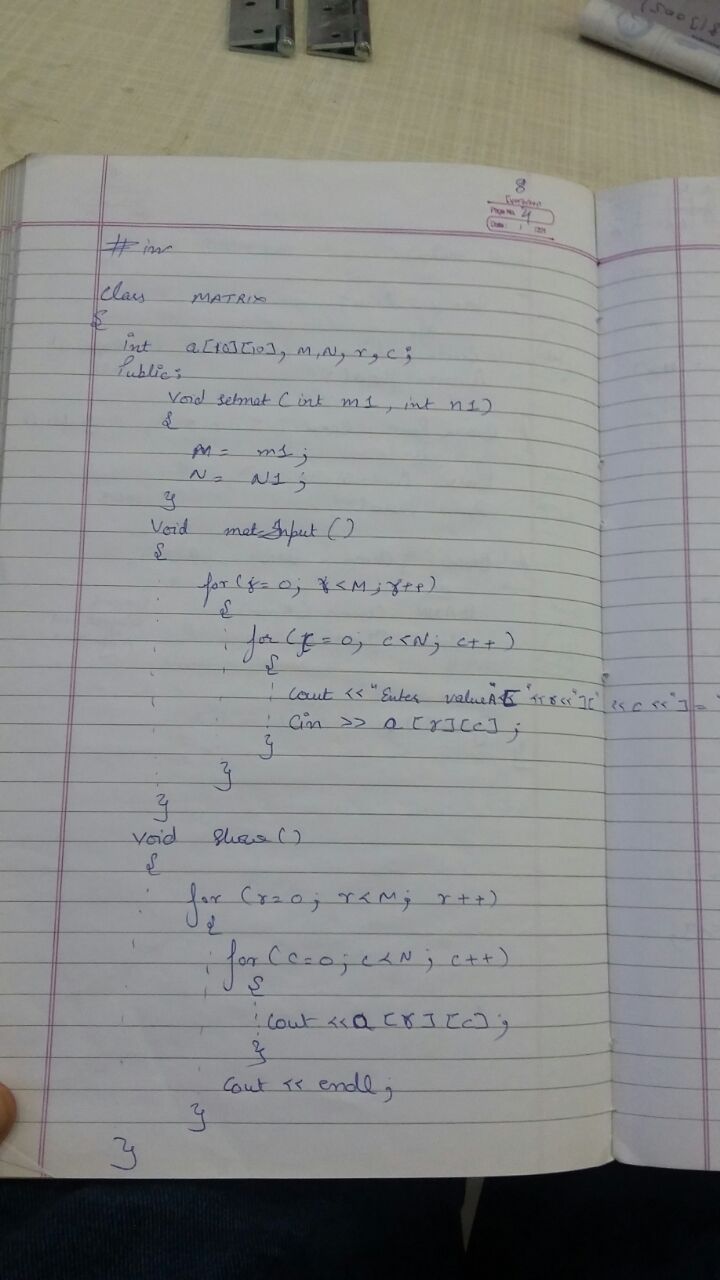 8
Page No. 4
Date: / 201
# in
Class MATRIX
{
int a[10][10], M, N, r, c;
Public:
Void setmat (int m1, int n1)
{
M = m1;
N = N1;
}
Void mat_Input ()
{
for(r=0; r<M; r++)
{
for (c=0; c<N; c++)
{
Cout << "Enter value A["<<r<<"]["<<c<<"]="
Cin >> a[r][c];
}
}
}
Void Show()
{
for (r=0; r<M; r++)
{
for (c=0; c<N; c++)
{
Cout <<a[r][c];
}
Cout << endl;
}
}